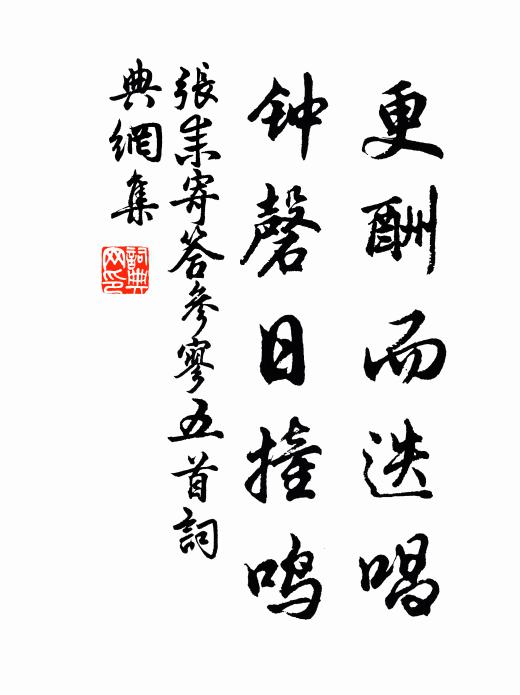 更酬而迭唱
钟磬日撞鸣
張耒寄答參寥五首詞
典網集
詞典网印